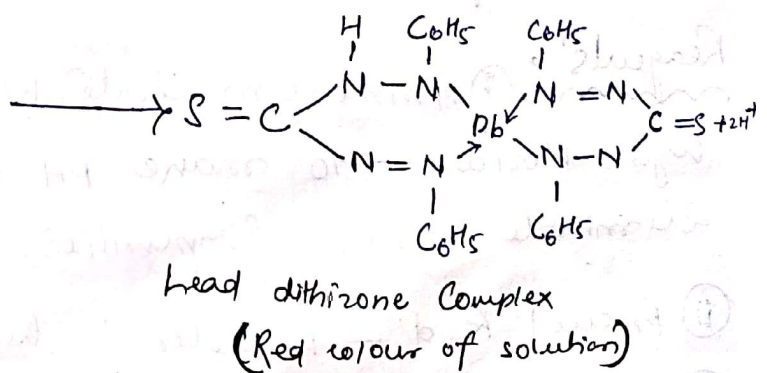 H C6H5 C6H5
N – N N = N
⟶ S = C Pb C = S + 2H+
N = N N – N
C6H5 C6H5
Lead dithizone Complex
(Red colour of solution)